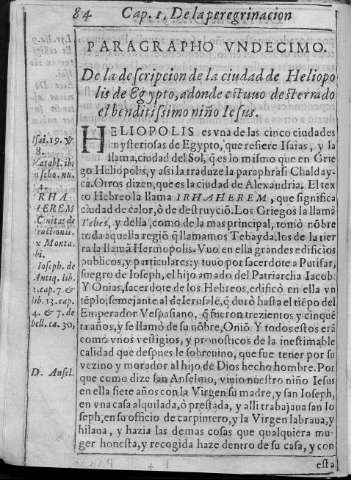 84 Cap. 1. De la peregrinacion
PARAGRAPHO VNDECIMO.
De la descripcion de la ciudad de Heliopo
lis de Egypto, adonde estuuo desterrado
el benditissimo niño Iesus.
HELIOPOLIS es vna de las cinco ciudades
mysteriosas de Egypto, que refiere Isaias, y la
llama, ciudad del Sol, q̃ es lo mismo que en Grie
go Heliopolis, y assi la traduze la paraphrasi Chalday-
ca. Otros dizen, que es la ciudad de Alexandria. El tex
to Hebreo la llama IRHAHEREM, que significa
ciudad de calor, ò de destruyciõ. Los Griegos la llamã
Tebes, y della, como de la mas principal, tomò nõbre
toda aquella regiõ q̃ llamamos Tebayda: los de la tier
ra la llamã Hermopolis. Vuo en ella grandes edificios
publicos, y particulares: y tuuo por sacerdote a Putifar,
suegro de Ioseph, el hijo amado del Patriarcha Iacob.
Y Onias, sacerdote de los Hebreos, edificò en ella vn
tẽplo, semejante al de Ierusalẽ, q̃ durò hasta el tiẽpo del
Emperador Vespasiano, q̃ fueron trezientos y cinquẽ
ta años, y se llamò de su nõbre, Oniõ. Y todos estos erã
como vnos vestigios, y pronosticos de la inestimable
calidad que despues le sobreuino, que fue tener por su
vezino y morador al hijo de Dios hecho hombre. Por
que como dize san Anselmo, viuio nuestro niño Iesus
en ella siete años con la Virgen su madre, y san Ioseph,
en vna casa alquilada, ò prestada, y alli trabajaua san Io
seph, en su officio de carpintero, y la Virgen labraua, y
hilaua, y hazia las demas cosas que qualquiera mu-
ger honesta, y recogida haze dentro de su casa, y con
esta
Isai. 19. &
8.
4.
IRHA
HEREM
Ciuitas de
x Monta
bi.
Ioseph. de
Antiq. lib.
1. cap. 7. &
lib. 13. cap.
4. & 7. de
bell. ca. 30,
D. Ansel.